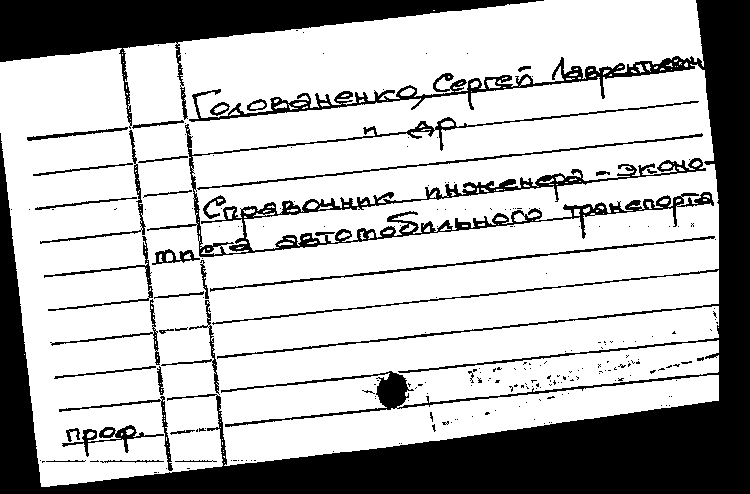 Голованенко, Сергей Лаврентьевич
и др.
Справочник инженера-эконо-
миста автомобильного транспорта
проф.